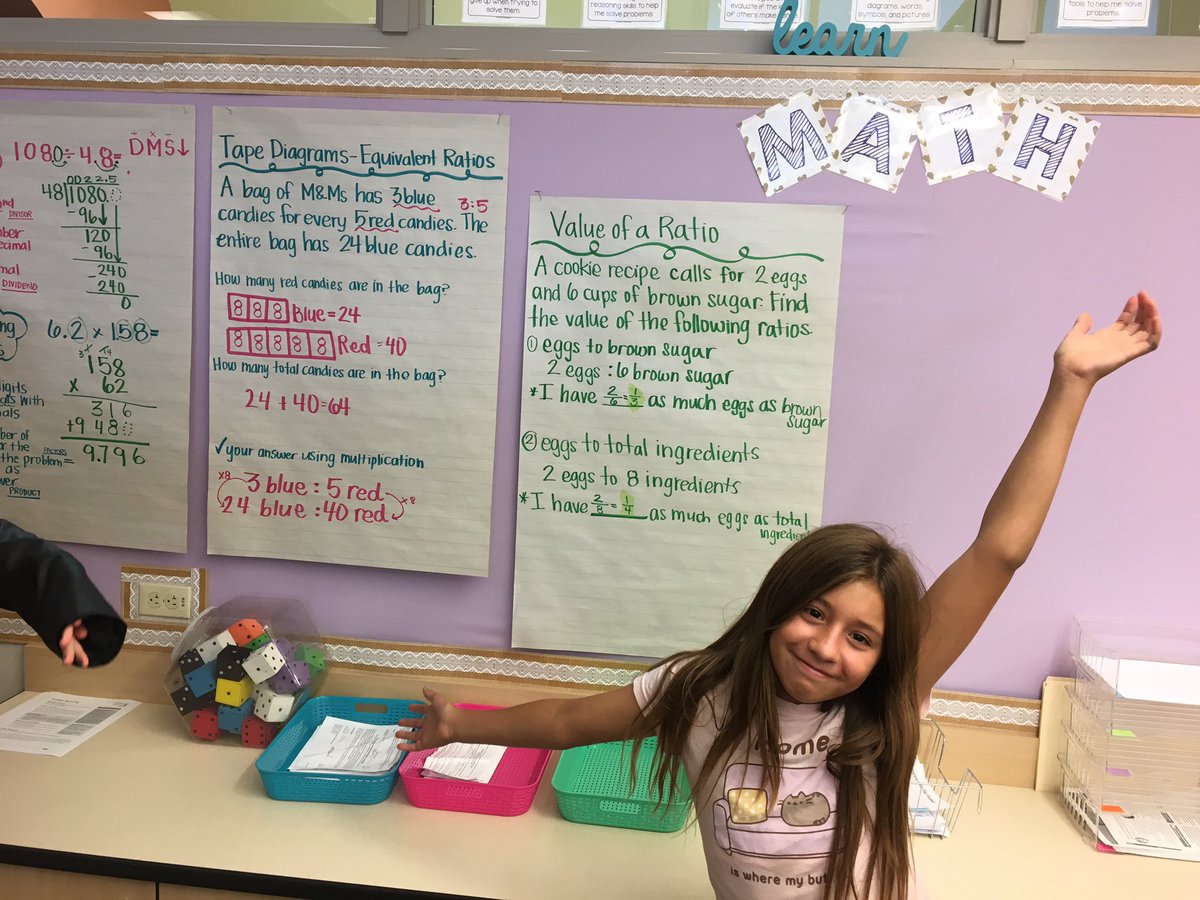 give up when trying to
solve them.
reasoning skills to help
me solve problems
evaluate if the
of others make
diagrams, words,
symbols, and pictures
tools to help me solve
problems
learn
MATH
1080÷4.8=
DMS↓
0022.5
48⟌1080.
-96↓
120
-96↓
-240
240
0
DIVISOR
DIVIDEND
6.2 x 1.58=
158
x 62
316
+948
9.796
digits
with
number of
the
FACTORS
the problem=
as
PRODUCT
Tape Diagrams-Equivalent Ratios
A bag of M&Ms has 3 blue
candies for every 5 red candies. The
3:5
entire bag has 24 blue candies.
How many red candies are in the bag?
8 8 8 Blue = 24
8 8 8 8 8 Red = 40
How many total candies are in the bag?
24 + 40 = 64
✓your answer using multiplication
x8 3 blue : 5 red x8
24 blue : 40 red
Value of a Ratio
A cookie recipe calls for 2 eggs
and 6 cups of brown sugar. Find
the value of the following ratios.
① eggs to brown sugar
2 eggs : 6 brown sugar
*I have 2/6 = 1/3 as much eggs as brown
sugar
② eggs to total ingredients
2 eggs to 8 ingredients
*I have 2/8 = 1/4 as much eggs as total
Home
is where my but